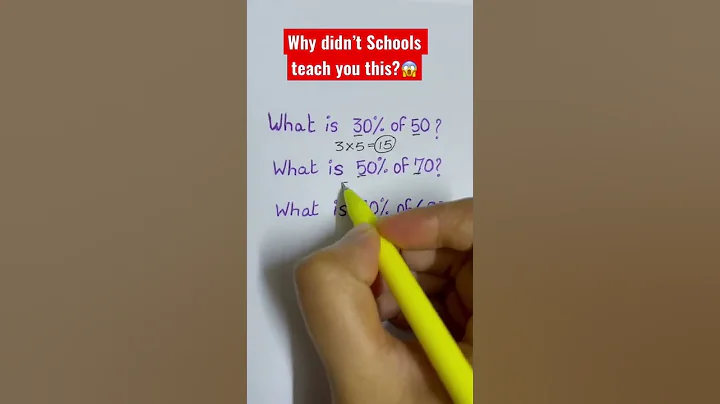 Why didn't Schools
teach you this?😱
What is 30% of 50?
3×5=15
What is 50% of 70?
What is